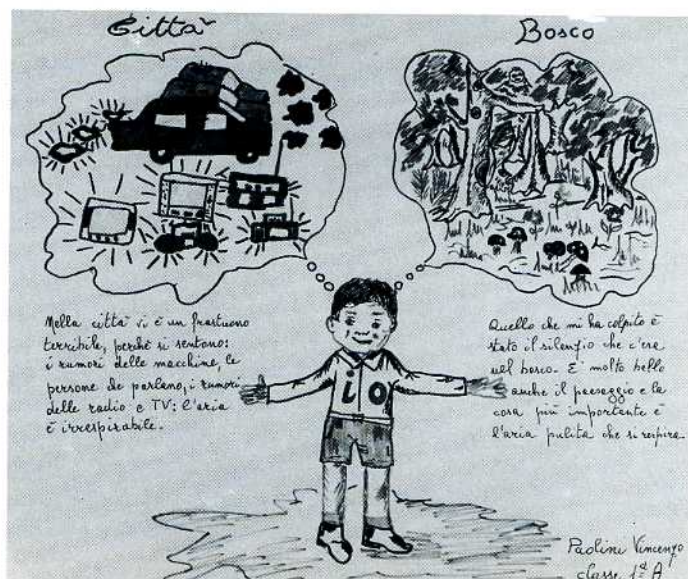 Città
Bosco
Nella città vi è un frastuono
terribile, perché si sentono:
i rumori delle macchine, le
persone che parlano, i rumori
delle radio e TV: l'aria
è irrespirabile.
Quello che mi ha colpito è
stato il silenzio che c'era
nel bosco. È molto bello
anche il paesaggio e la
cosa più importante è
l'aria pulita che si respira.
io
Paolini Vincenzo
classe 1ª A